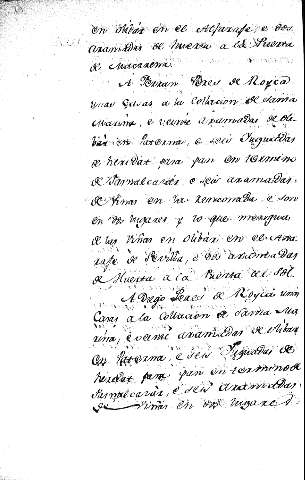 en olibar en el Alxarafe e dos
aranzadas de huerta a la Puerta
de Macarena.
A Beran Peres de Moyca
unas Casas a la collacion de Santa
Marina, e veinte aranzadas de oli-
bar en Paterna, e seis Jugadas
de heredat para pan en termino
de Sanalcazar, e seis aranzadas
de Viñas en la e son
en dos lugares y lo que mengua
de las viñas en olibar en el Axa-
rafe de Sevilla, e dos aranzadas
de Huerta a la Puerta del Sol.
A Diego Peres de Moyca unas
Casas a la collacion de Santa Ma-
rina, e veinte aranzadas de olibar
en Paterna, e seis Jugadas de
heredat para pan en termino de
Sanalcazar, e seis aranzadas
de Viñas en dos lugares